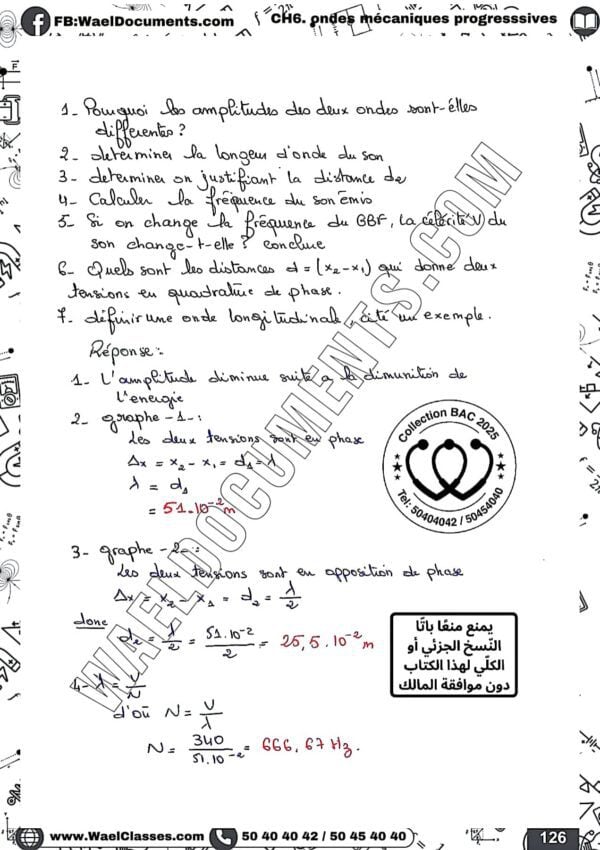 FB:WaelDocuments.com
CH6. ondes mécaniques progresssives
1- Pourquoi les amplitudes des deux ondes sont-elles
différentes ?
2- determiner la longeur d'onde du son
3- determiner en justifiant la distance d2
4- Calculer la fréquence du son émis
5- Si on change la fréquence du GBF, la célérité V du
son change-t-elle ? conclure
6- Quels sont les distances d = (x2 - x1) qui donne deux
tensions en quadrature de phase.
7- définir une onde longitudinale, cité un exemple.
Réponse :
1- L'amplitude diminue suite a la dimunition de
l'energie
2- graphe -1- :
Les deux tensions sont en phase
Δx = x2 - x1 = d1 = λ
λ = d1
= 51.10⁻² m
Collection BAC 2025
Tel: 50404042 / 50454040
3- graphe -2- :
Les deux tensions sont en opposition de phase
Δx = x2 - x1 = d2 = λ/2
donc d2 = λ/2 = 51.10⁻²/2 = 25,5.10⁻² m
يمنع منعًا باتًا
النّسخ الجزئي أو
الكلّي لهذا الكتاب
دون موافقة المالك
4- λ = V/N
d'où N = V/λ
N = 340/51.10⁻² = 666,67 Hz.
WAELDOCUMENTS.COM
www.WaelClasses.com
50 40 40 42 / 50 45 40 40
126